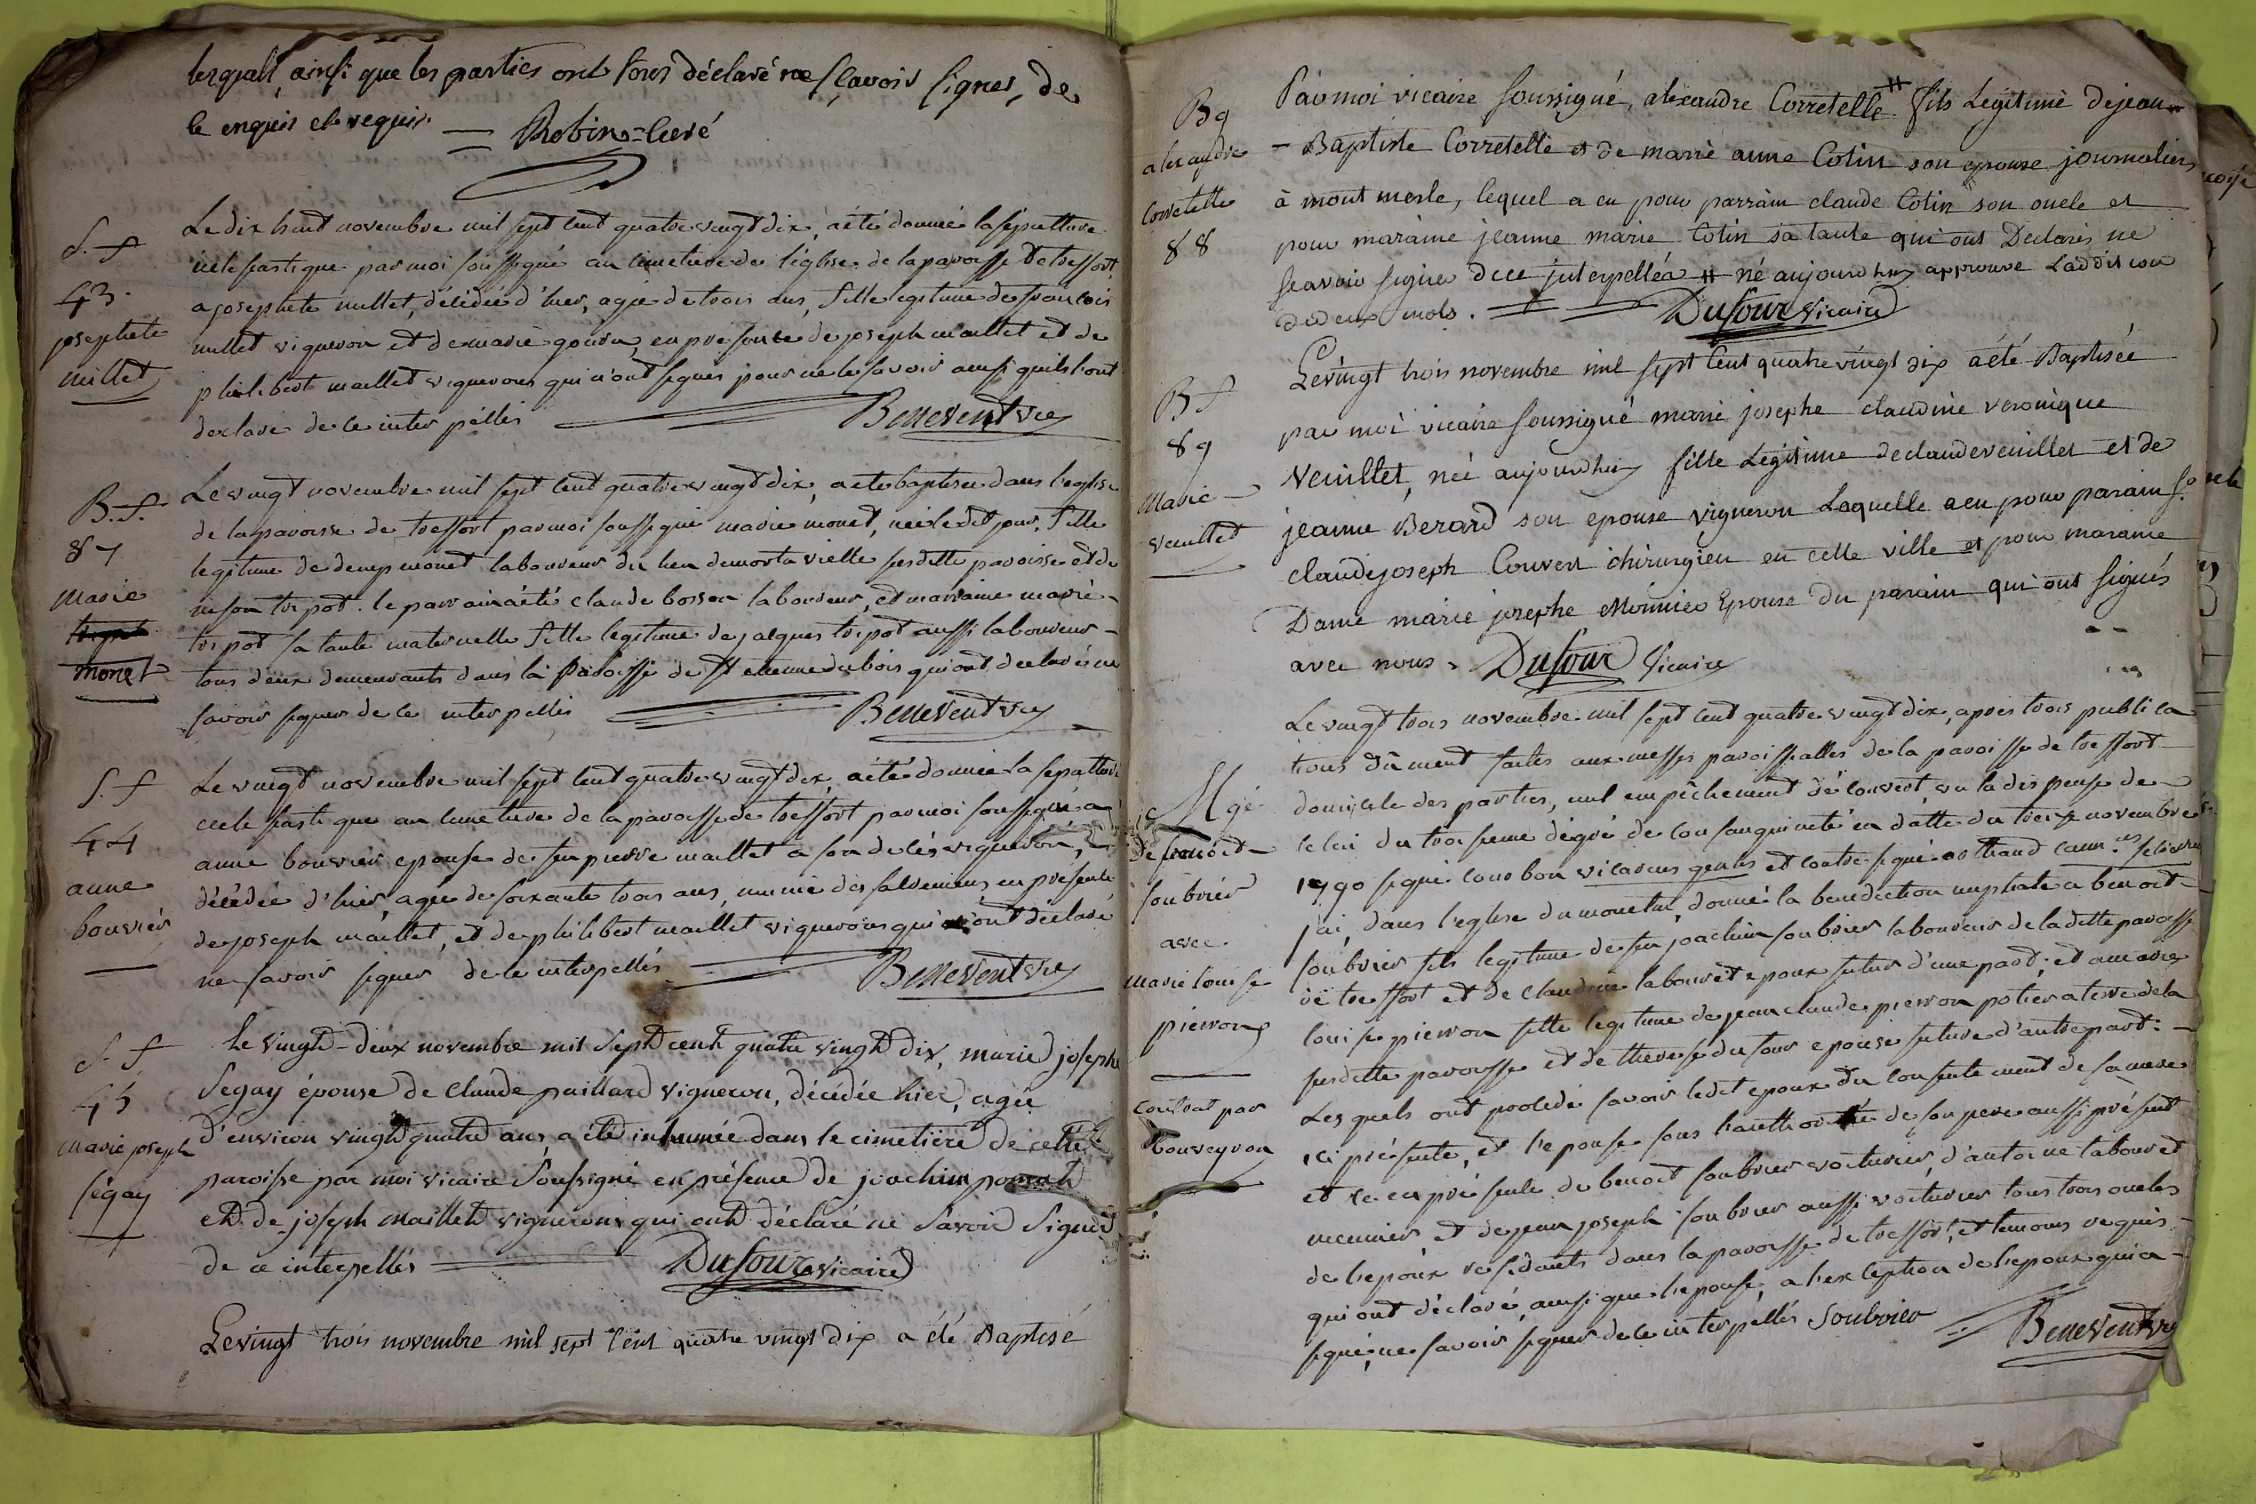 lesquels, ainsi que les parties ont tous déclaré ne sçavoir signer, de
ce enquis et requis. Robin = Curé
S. f
43.
josephete
millet
Le dix huit novembre mil sept cent quatre vingt dix, a été donnée la sépulture
eclesiastique par moi soussigné au cimetiere de l'église de la paroisse de treffort
a josephete millet, décédée d'hier, agée de trois ans, fille legitime de francois
millet vigneron et de marie gouru, en presence de joseph maillet et de
philibert maillet vignerons qui n'ont signés pour ne le savoir ainsi quils l'ont
declaré de ce interpellés Benevent vre
B. f.
87
marie
monet
Le vingt novembre mil sept cent quatre vingt dix, a eté baptisée dans l'eglise
de la paroisse de treffort par moi soussigné marie monet, née ledit jour, fille
legitime de denis monet laboureur du lieu de morta vielle susditte paroisse et de
tripot. le parrain a été claude bosson laboureur, et marraine marie
tripot sa tante maternelle fille legitime de jacques tripot aussi laboureur
tous deux demeurants dans la Paroisse de st etienne du bois qui ont declarés ne
savoir signer de ce interpellés Benevent vre
S. f
44
anne
bouvier
Le vingt novembre mil sept cent quatre vingt dix, a été donnée la sepulture
eclesiastique au cimetiere de la paroisse de treffort par moi soussigné a
anne bouvier epouse de feu pierre maillet a son decés vigneron,
décédée d'hier, agée de soixante trois ans, munie des sacremens en présence
de joseph maillet, et de philibert maillet vignerons qui ont déclaré
ne savoir signer de ce interpellés Benevent vre
S. f
45
marie joseph
segay
Le vingt-deux novembre mil sept cent quatre vingt dix, marie josephe
Segay épouse de Claude paillard vigneron, décédée hier, agée
d'environ vingt quatre ans a été inhumée dans le cimetière de cette
paroisse par moi vicaire Soussigné en présence de joachim
et de joseph Maillet vignerons qui ont déclaré ne Savoir Signer
de ce interpellés Dufour vicaire
Le vingt trois novembre mil sept cent quatre vingt dix a été Baptisé
Bg
alexandre
Corretelle
88
Par moi vicaire soussigné, alexandre Corretelle # fils Legitime de jean
- Baptiste Corretelle et de marie anne Cotin son epouse journalier
à mont merle, lequel a eu pour parrain claude Cotin son oncle et
pour maraine jeanne marie Cotin sa tante qui ont Declarés ne
scavoir signer de ce interpellés # né aujourdhuy approuvé Laddition
de deux mots. Dufour vicaire
B f
89
Marie
veuillet
Le vingt trois novembre mil sept cent quatre vingt dix a été Baptisée
par moi vicaire soussigné marie josephe claudine veronique
Veuillet, née aujourdhuy fille Legitime de claude veuillet et de
jeanne Berard son epouse vigneron Laquelle a eu pour parain sr
claude joseph Couvert chirurgien en cette ville et pour maraine
Dame marie josephe Monnier Epouse du parain qui ont signés
avec nous. Dufour Vicaire
Mgé
de benoit
soubrier
avec
marie louise
pierron
contrat par
Bouveyron
Le vingt trois novembre mil sept cent quatre vingt dix, apres trois publica
tions dûment faites aux messes paroissialles de la paroisse de treffort
domicile des parties, nul empêchement découvert, vu la dispense de
celui du troisieme dégré de consanguinité en datte du treize novembre
1790 signé courbon vicarius gnlis et contre signé
j'ai, dans l'eglise du moutier, donné la benediction nuptiale a benoit
soubrier fils legitime de feu joachim soubrier laboureur de la ditte paroisse
de treffort et de Claudine labouret epoux futur d'une part; et a marie
louise pierron fille legitime de jean claude pierron potier a terre de la
susditte paroisse et de therese dufour epouse future d'autre part:
Lesquels ont procedé savoir ledit epoux du consentement de sa mere
ici présente, et l'epouse sous l'authorité de son pere aussi présent
et ce en présence de benoit soubrier voiturier, d'antoine labouret
meunier et de jean joseph soubrier aussi voiturier tous trois oncles
de l'epoux residants dans la paroisse de treffort, et temoins requis
qui ont déclaré, ainsi que l'epouse, a l'exception de l'epoux qui a
signé, ne savoir signer de ce interpellés Soubrier Benevent vre